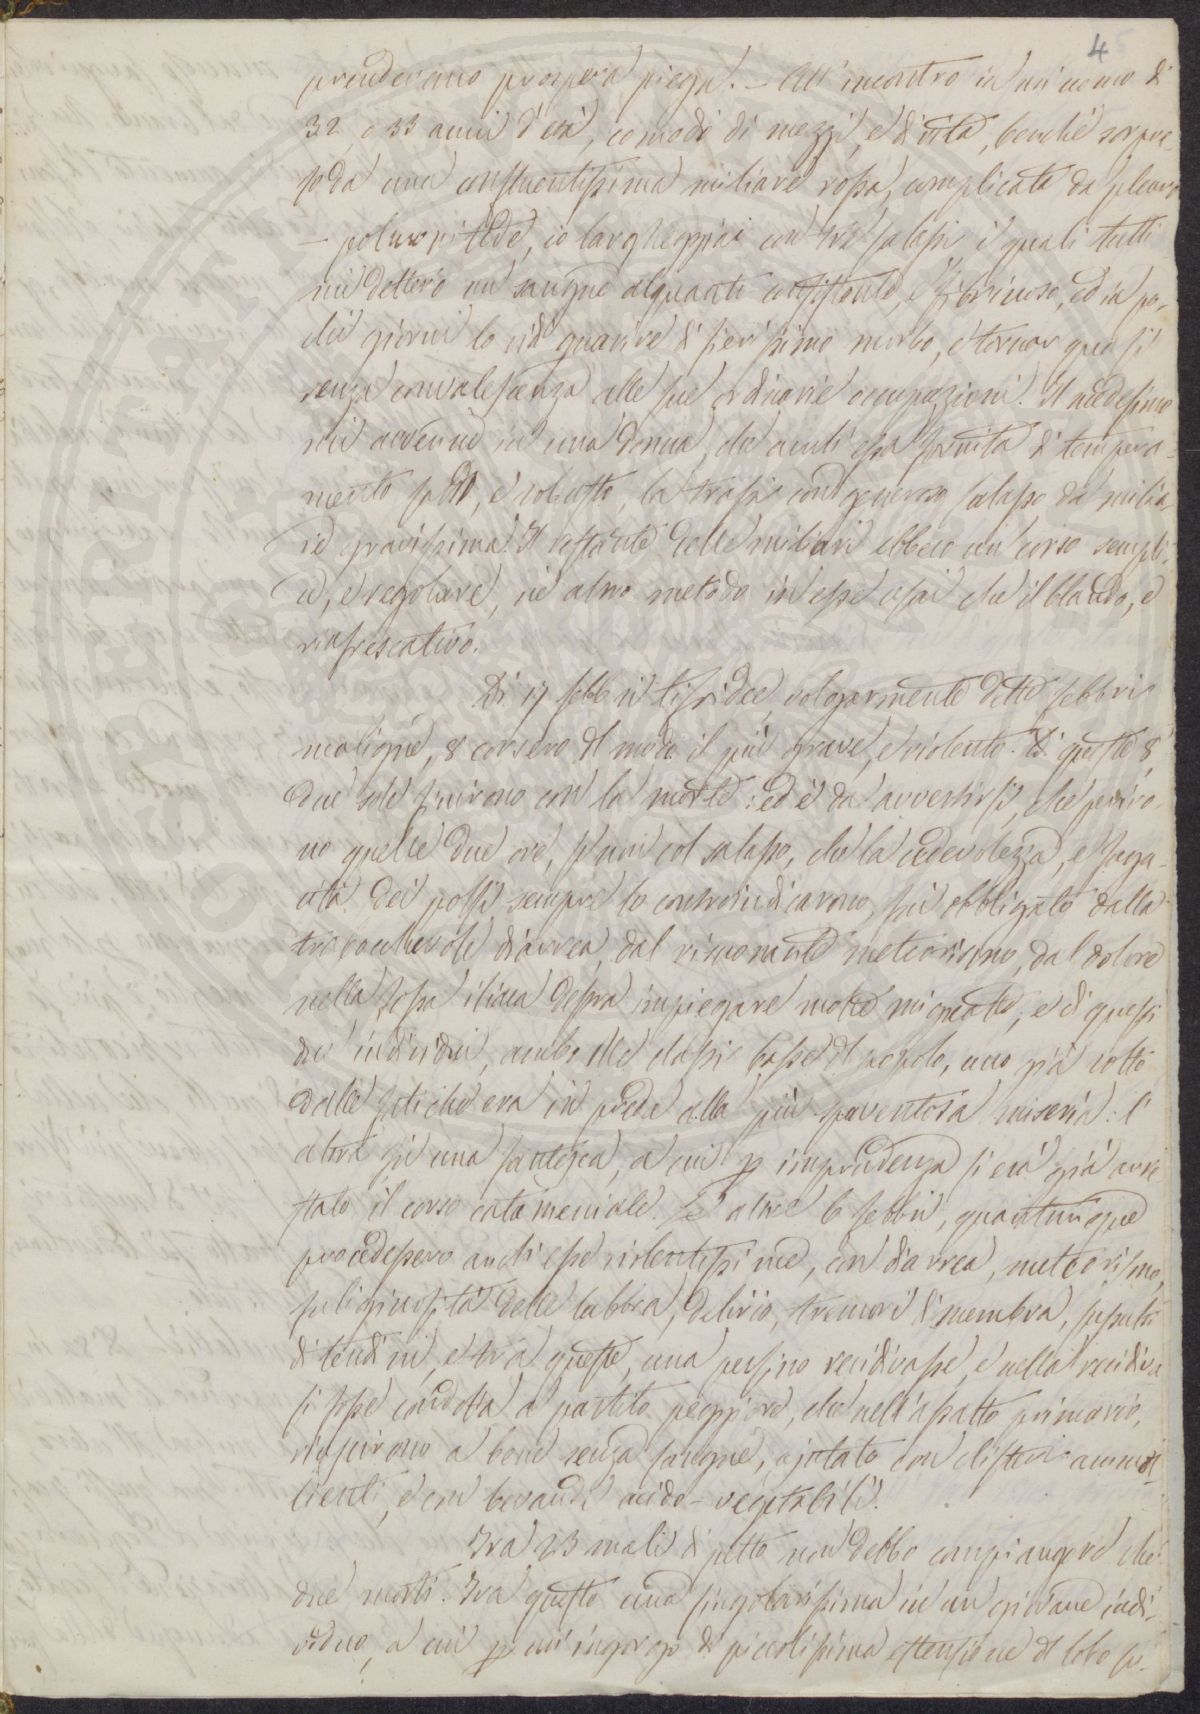 4
prendevano prospera piega. – All' incontro in un uomo di
32 o 33 anni d'età, comodo di mezzi, e di vita, benchè sorpre-
so da una confluentissima miliare rossa, complicata da pleuro
– polmonitide, io largheggiai con tre salassi i quali tutti
mi dettero un sangue alquanto consistente, e fibrinoso, ed in po-
chi giorni lo vidi guarire di fierissimo morbo, e tornar quasi
senza convalescenza alle sue ordinarie occupazioni. Il medesimo
mi avvenne in una donna, che anch'essa fornita di tempera-
mento, e robusto, la trassi con generoso salasso da milia-
re gravissima. Il restante delle miliari ebbero un corso sempli-
ce, e regolare, nè altro metodo in esse usai che il blando, e
rinfrescativo.
Di 17 febbri tifoidee, volgarmente dette febbri
maligne, 8 corsero nel modo il più grave, e violento. Di queste 8
due sole finirono con la morte: ed è da avvertirsi, che periro-
no quelle due ove, se non col salasso, che la cedevolezza, e fuga-
cità dei polsi sempre lo controindicarono, fui obbligato dalla
trabocchevole diarrea, dal risuonante meteorismo, dal dolore
nella fossa iliaca destra impiegare molte mignatte; e di questi
due individui, ambo delle classi basse del popolo, uno già rotto
dalle fatiche era in preda alla più spaventosa miseria: l'
altra fu una fantesca, a cui per imprudenza si era già arre
stato il corso catameniale. Le altre 6 febbri, quantunque
procedessero anch'esse violentissime, con diarrea, meteorismo,
fuliginosità delle labbra, delirio, tremori di membra, sussulti
di tendini, e tra queste, una persino recidivasse, e nella recidiva
si fosse condotta a partito peggiore, che nell'assalto primario,
riuscirono a bene senza sangue, ajutato con clisteri ammol
lienti, e con bevande acido-vegetabili.
Tra 23 mali di petto non debbo compiangere che
due morti. Tra queste una singolarissima in un giovane indi-
viduo, a cui per un ingorgo di piccolissima estensione del lobo su-